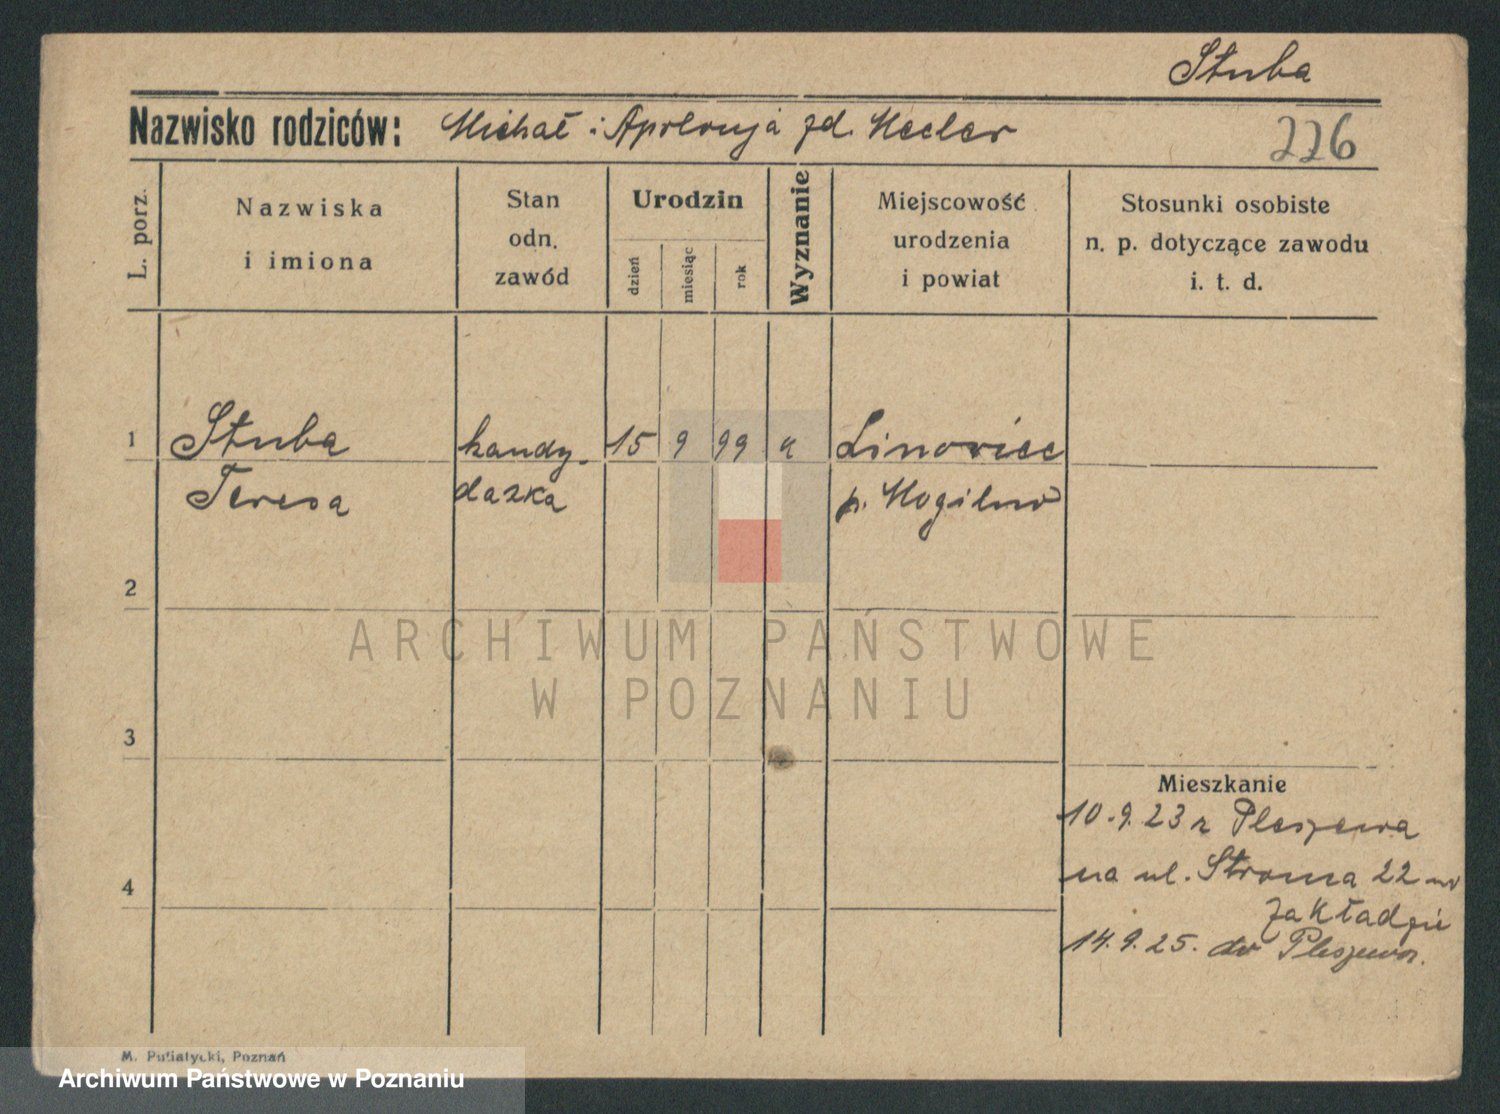 Stuba
Nazwisko rodziców: Michał i Apolonja zd. Hecler
226
L. porz.
Nazwiska
i imiona
Stan
odn.
zawód
Urodzin
dzień
miesiąc
rok
Wyznanie
Miejscowość
urodzenia
i powiat
Stosunki osobiste
n. p. dotyczące zawodu
i. t. d.
1 Stuba kandy- 15 9 99 k Linowiec
Teresa datka p. Mogilno
2
3
4
Mieszkanie
10.9.23 z Pleszewa
na ul. Stroma 22 w
zakładzie
14.9.25. do Pleszewa.
ARCHIWUM PAŃSTWOWE
W POZNANIU
M. Putiatycki, Poznań
Archiwum Państwowe w Poznaniu